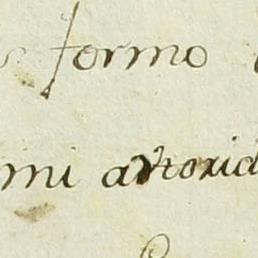 formo
mi autorid